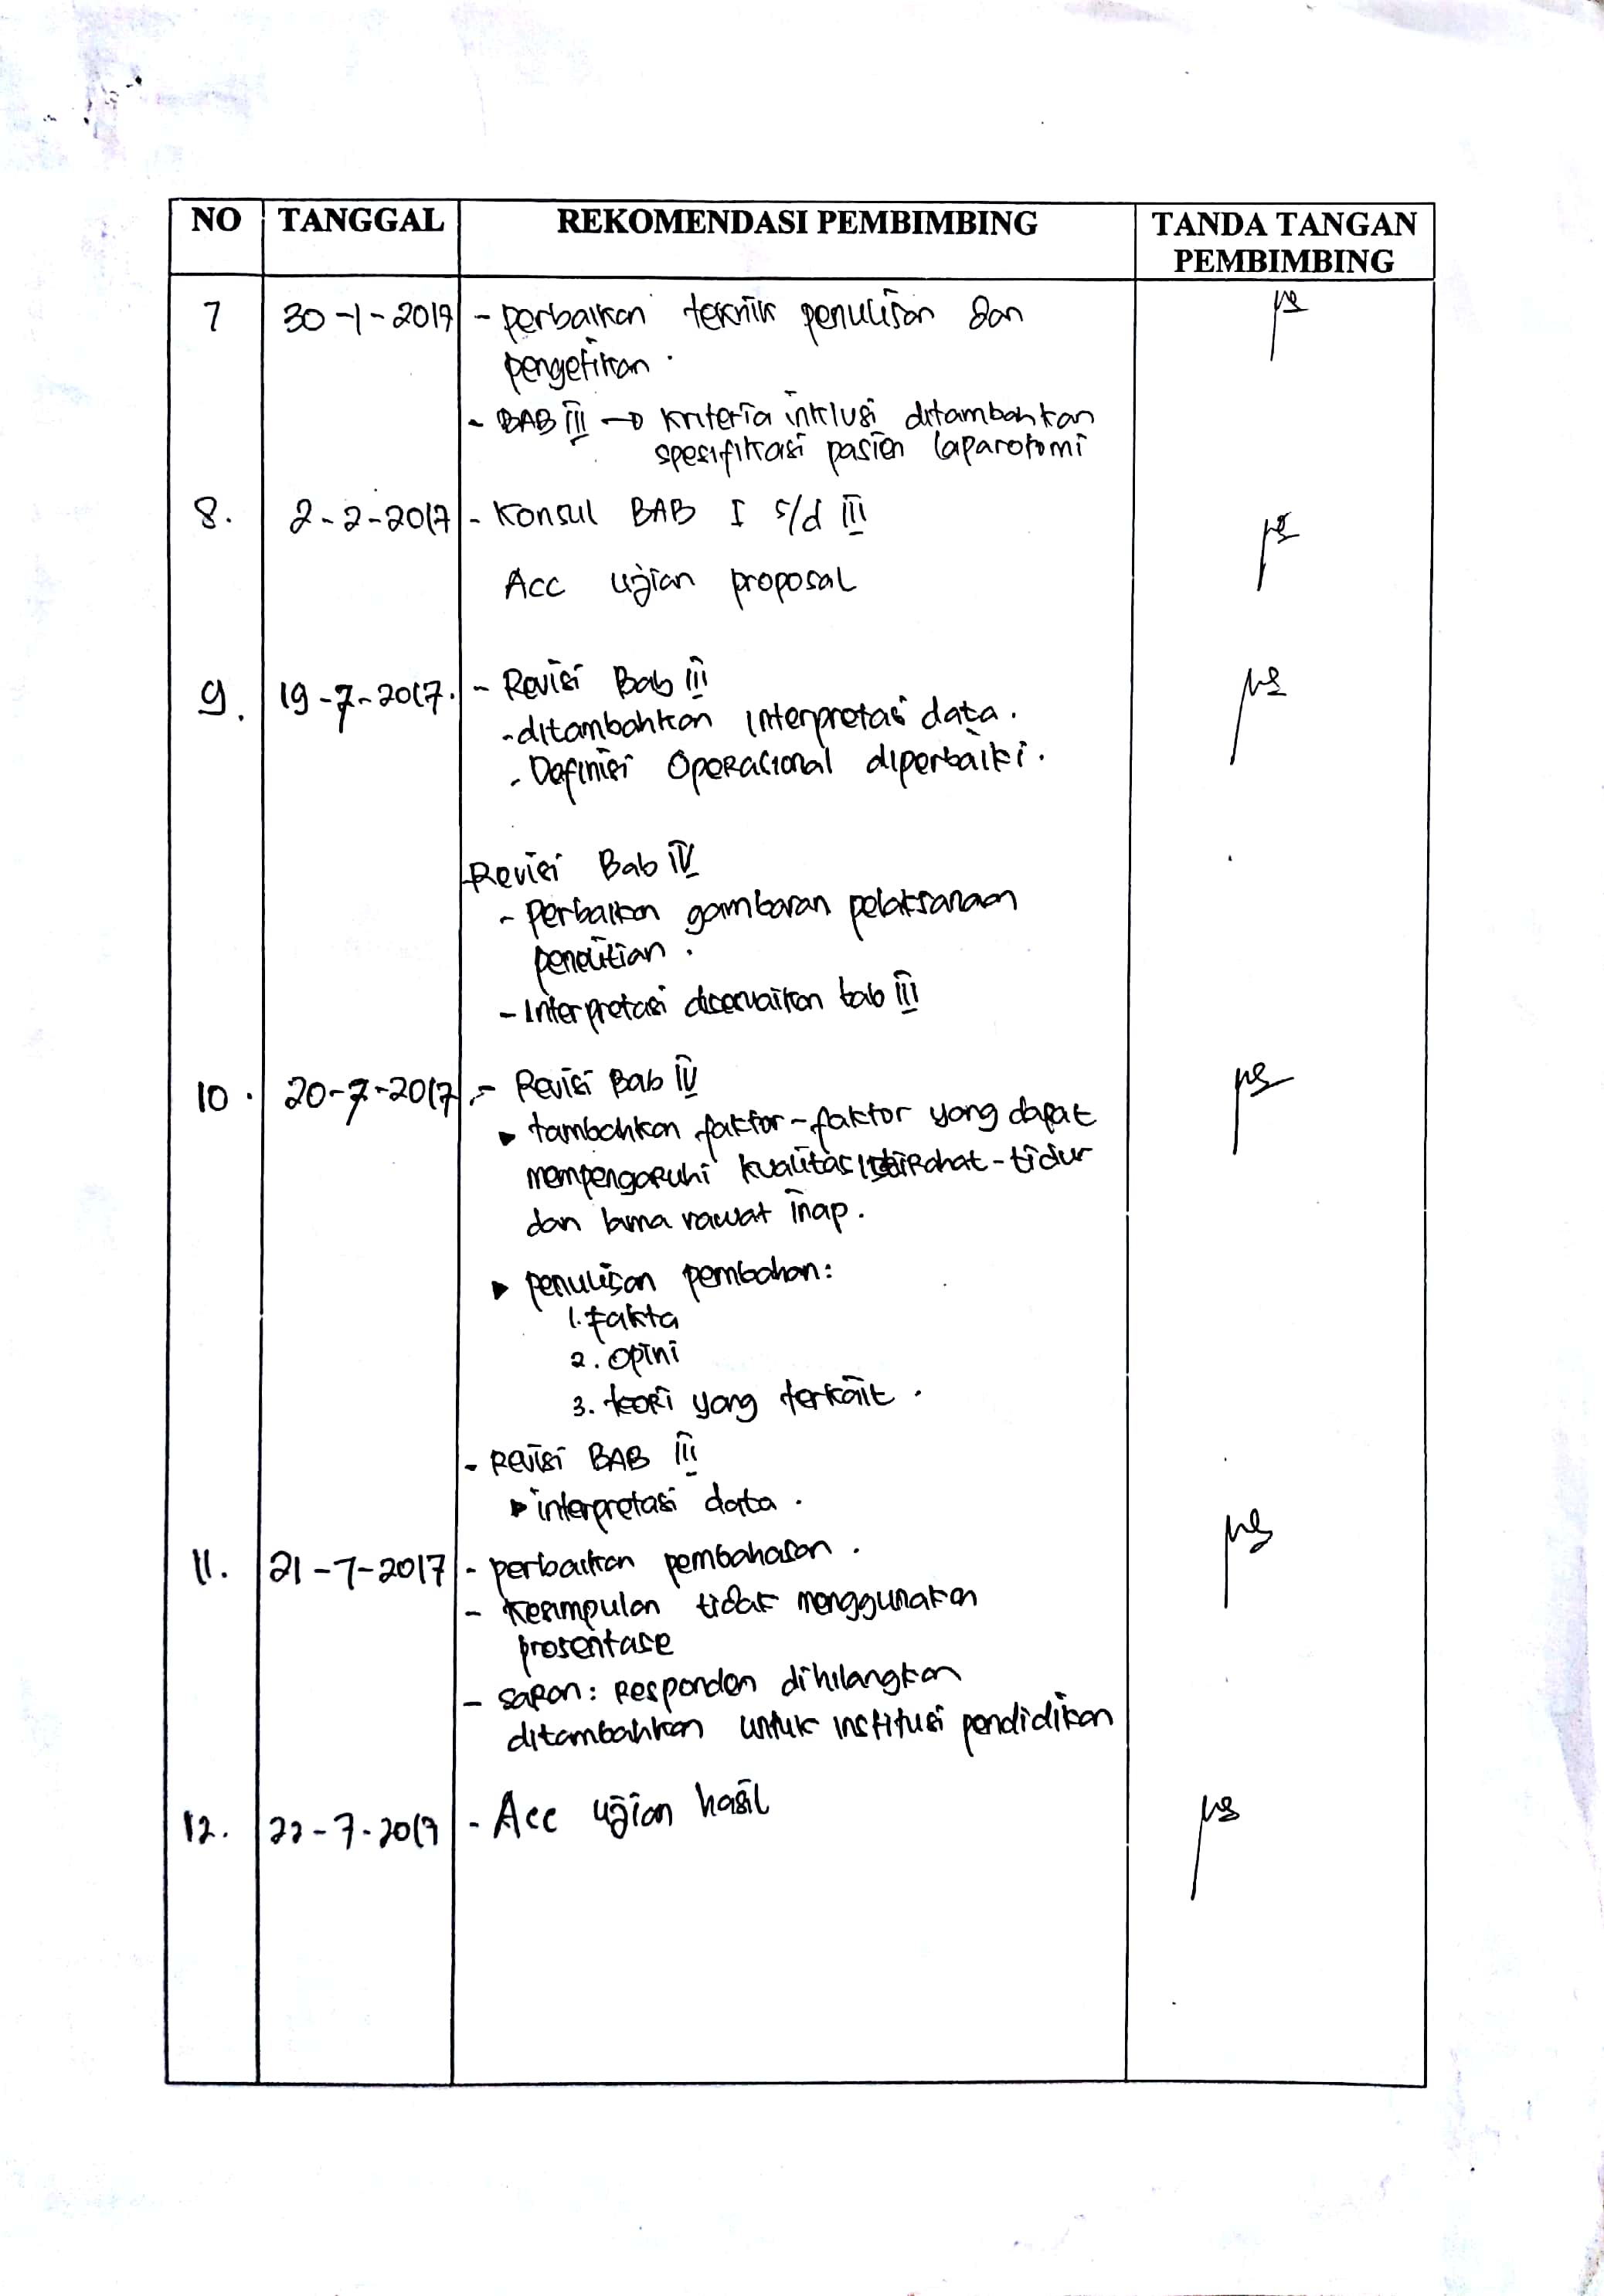 NO TANGGAL REKOMENDASI PEMBIMBING TANDA TANGAN PEMBIMBING
7 30-1-2017 - perbaikan teknik penulisan dan
pengetikan.
- BAB III → kriteria inklusi ditambahkan
spesifikasi pasien laparotomi
8. 2-2-2017 - Konsul BAB I s/d III
Acc ujian proposal
9. 19-7-2017. - Revisi Bab III
- ditambahkan interpretasi data.
- Definisi Operasional diperbaiki.
Revisi Bab IV
- Perbaikan gambaran pelaksanaan
penelitian.
- Interpretasi disesuaikan bab III
10. 20-7-2017 - Revisi Bab IV
▸ tambahkan faktor-faktor yang dapat
mempengaruhi kualitas istirahat-tidur
dan lama rawat inap.
▸ penulisan pembahan:
1. fakta
2. opini
3. teori yang terkait.
- Revisi BAB III
▸ interpretasi data.
11. 21-7-2017 - perbaikan pembahasan.
- Kesimpulan tidak menggunakan
prosentase
- saran: Responden dihilangkan
ditambahkan untuk institusi pendidikan
12. 22-7-2017 - Acc ujian hasil